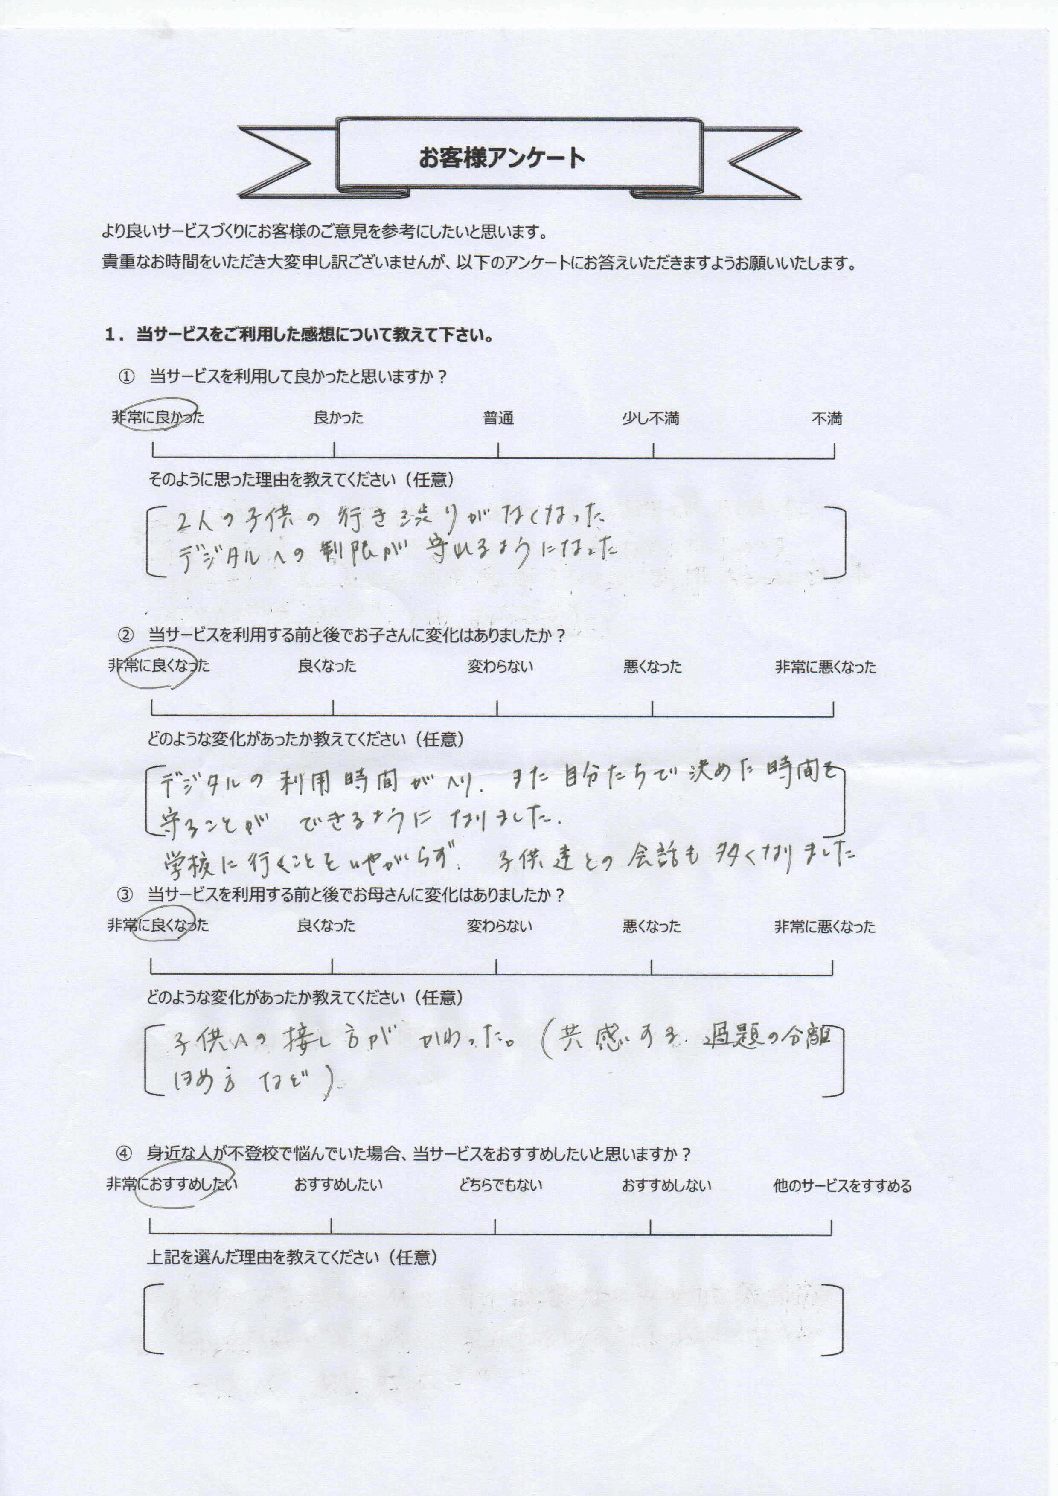 お客様アンケート
より良いサービスづくりにお客様のご意見を参考にしたいと思います。
貴重なお時間をいただき大変申し訳ございませんが、以下のアンケートにお答えいただきますようお願いいたします。
1．当サービスをご利用した感想について教えて下さい。
① 当サービスを利用して良かったと思いますか？
非常に良かった 良かった 普通 少し不満 不満
そのように思った理由を教えてください（任意）
2人の子供の行き渋りがなくなった
デジタルへの制限が守れるようになった
② 当サービスを利用する前と後でお子さんに変化はありましたか？
非常に良くなった 良くなった 変わらない 悪くなった 非常に悪くなった
どのような変化があったか教えてください（任意）
デジタルの利用時間がへり、また自分たちで決めた時間を
守ることができるようになりました.
学校に行くことをいやがらず、子供達との会話も多くなりました
③ 当サービスを利用する前と後でお母さんに変化はありましたか？
非常に良くなった 良くなった 変わらない 悪くなった 非常に悪くなった
どのような変化があったか教えてください（任意）
子供への接し方がかわった。（共感する、題の分離
ほめ方など）
④ 身近な人が不登校で悩んでいた場合、当サービスをおすすめしたいと思いますか？
非常におすすめしたい おすすめしたい どちらでもない おすすめしない 他のサービスをすすめる
上記を選んだ理由を教えてください（任意）